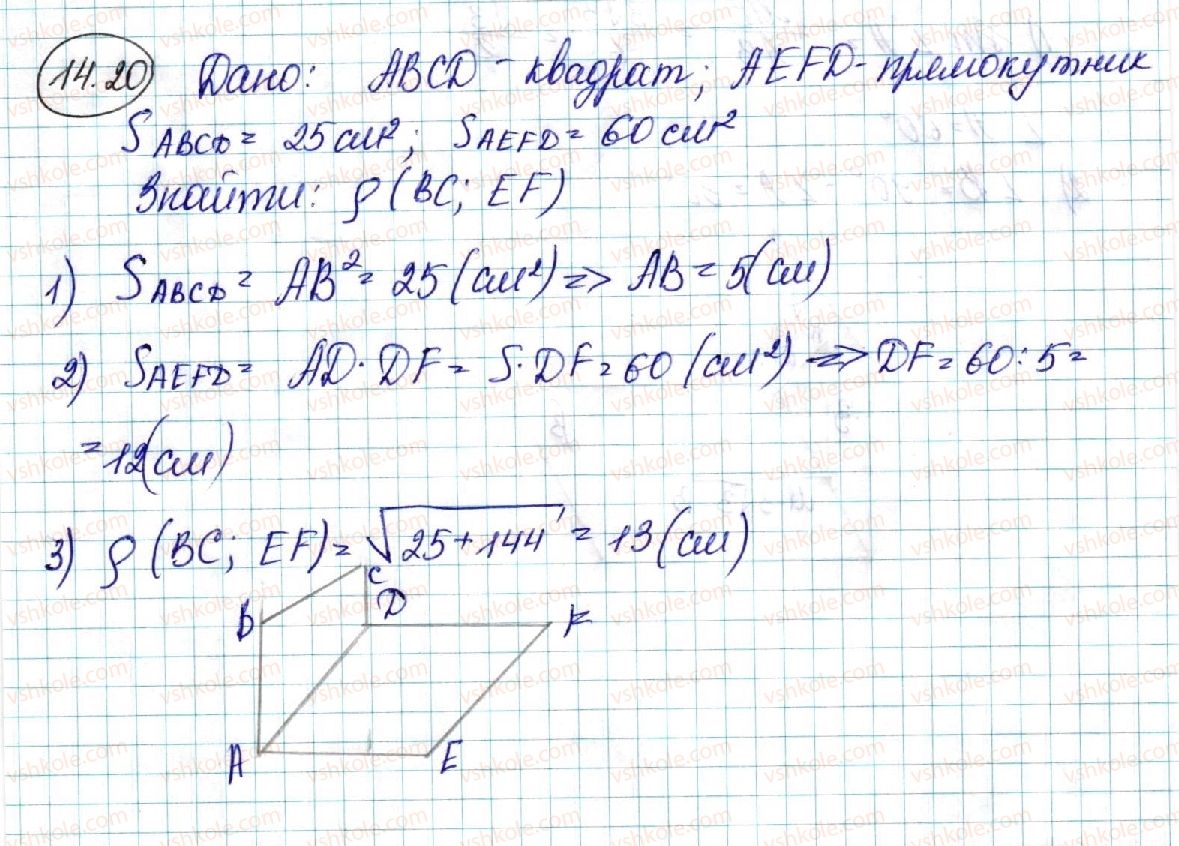 14.20 Дано: ABCD - квадрат; AEFD - прямокутник
S ABCD = 25 см²; S AEFD = 60 см²
Знайти: ρ (BC; EF)
1) S ABCD = AB² = 25 (см²) => AB = 5 (см)
2) S AEFD = AD · DF = 5 · DF = 60 (см²) => DF = 60 : 5 =
= 12 (см)
3) ρ (BC; EF) = √25 + 144 = 13 (см)
C
B D F
A E
vshkole.com